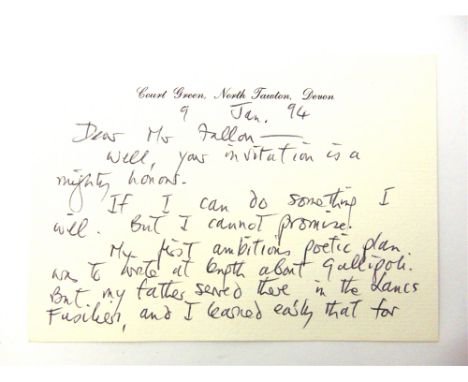 Court Green, North Tawton, Devon
9 Jan, 94
Dear Mr Fallon —
Well, your invitation is a
mighty honour.
If I can do something I
will. But I cannot promise.
My first ambitious poetic plan
was to write at length about Gallipoli.
But my father served there in the Lancs
Fusiliers, and I learned early that for